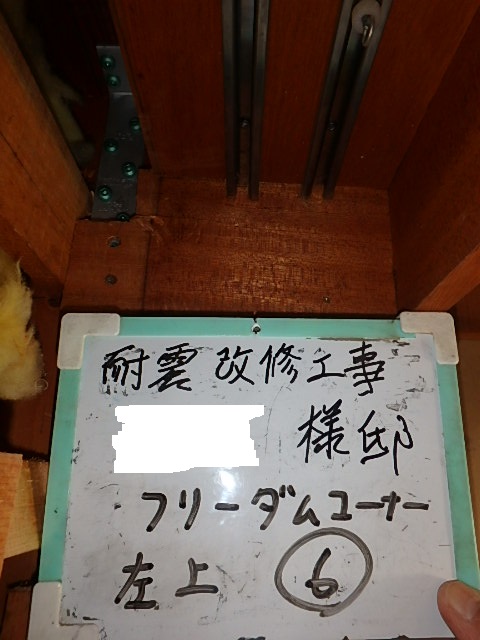 耐震改修工事
様邸
フリーダムコーナー
左上 ⑥